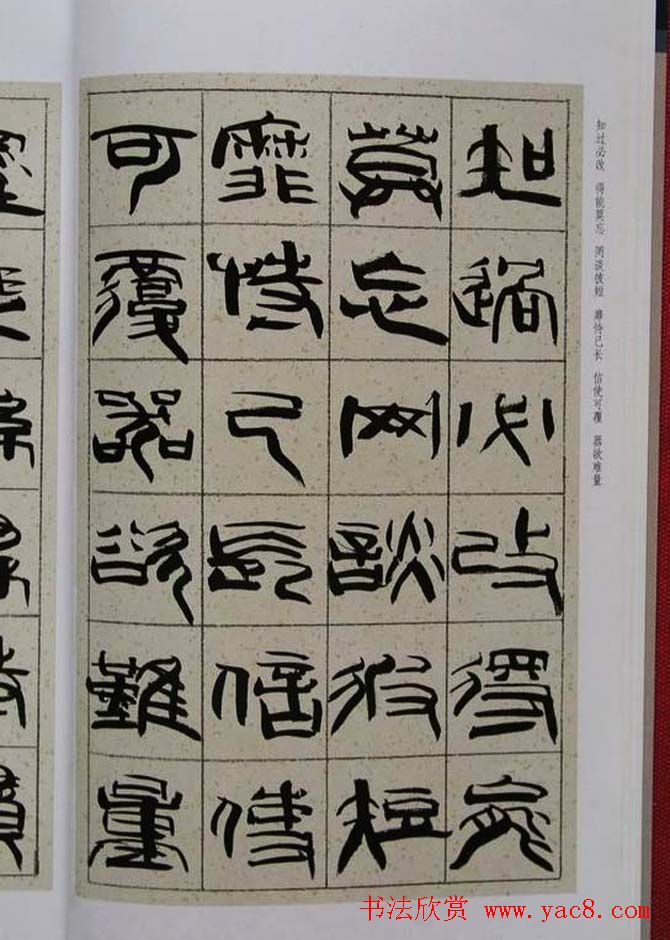 知过必改 得能莫忘 罔谈彼短 靡恃己长 信使可覆 器欲难量
知過必改得能
莫忘罔談彼短
靡恃己長信使
可覆器欲難量
书法欣赏 www.yac8.com